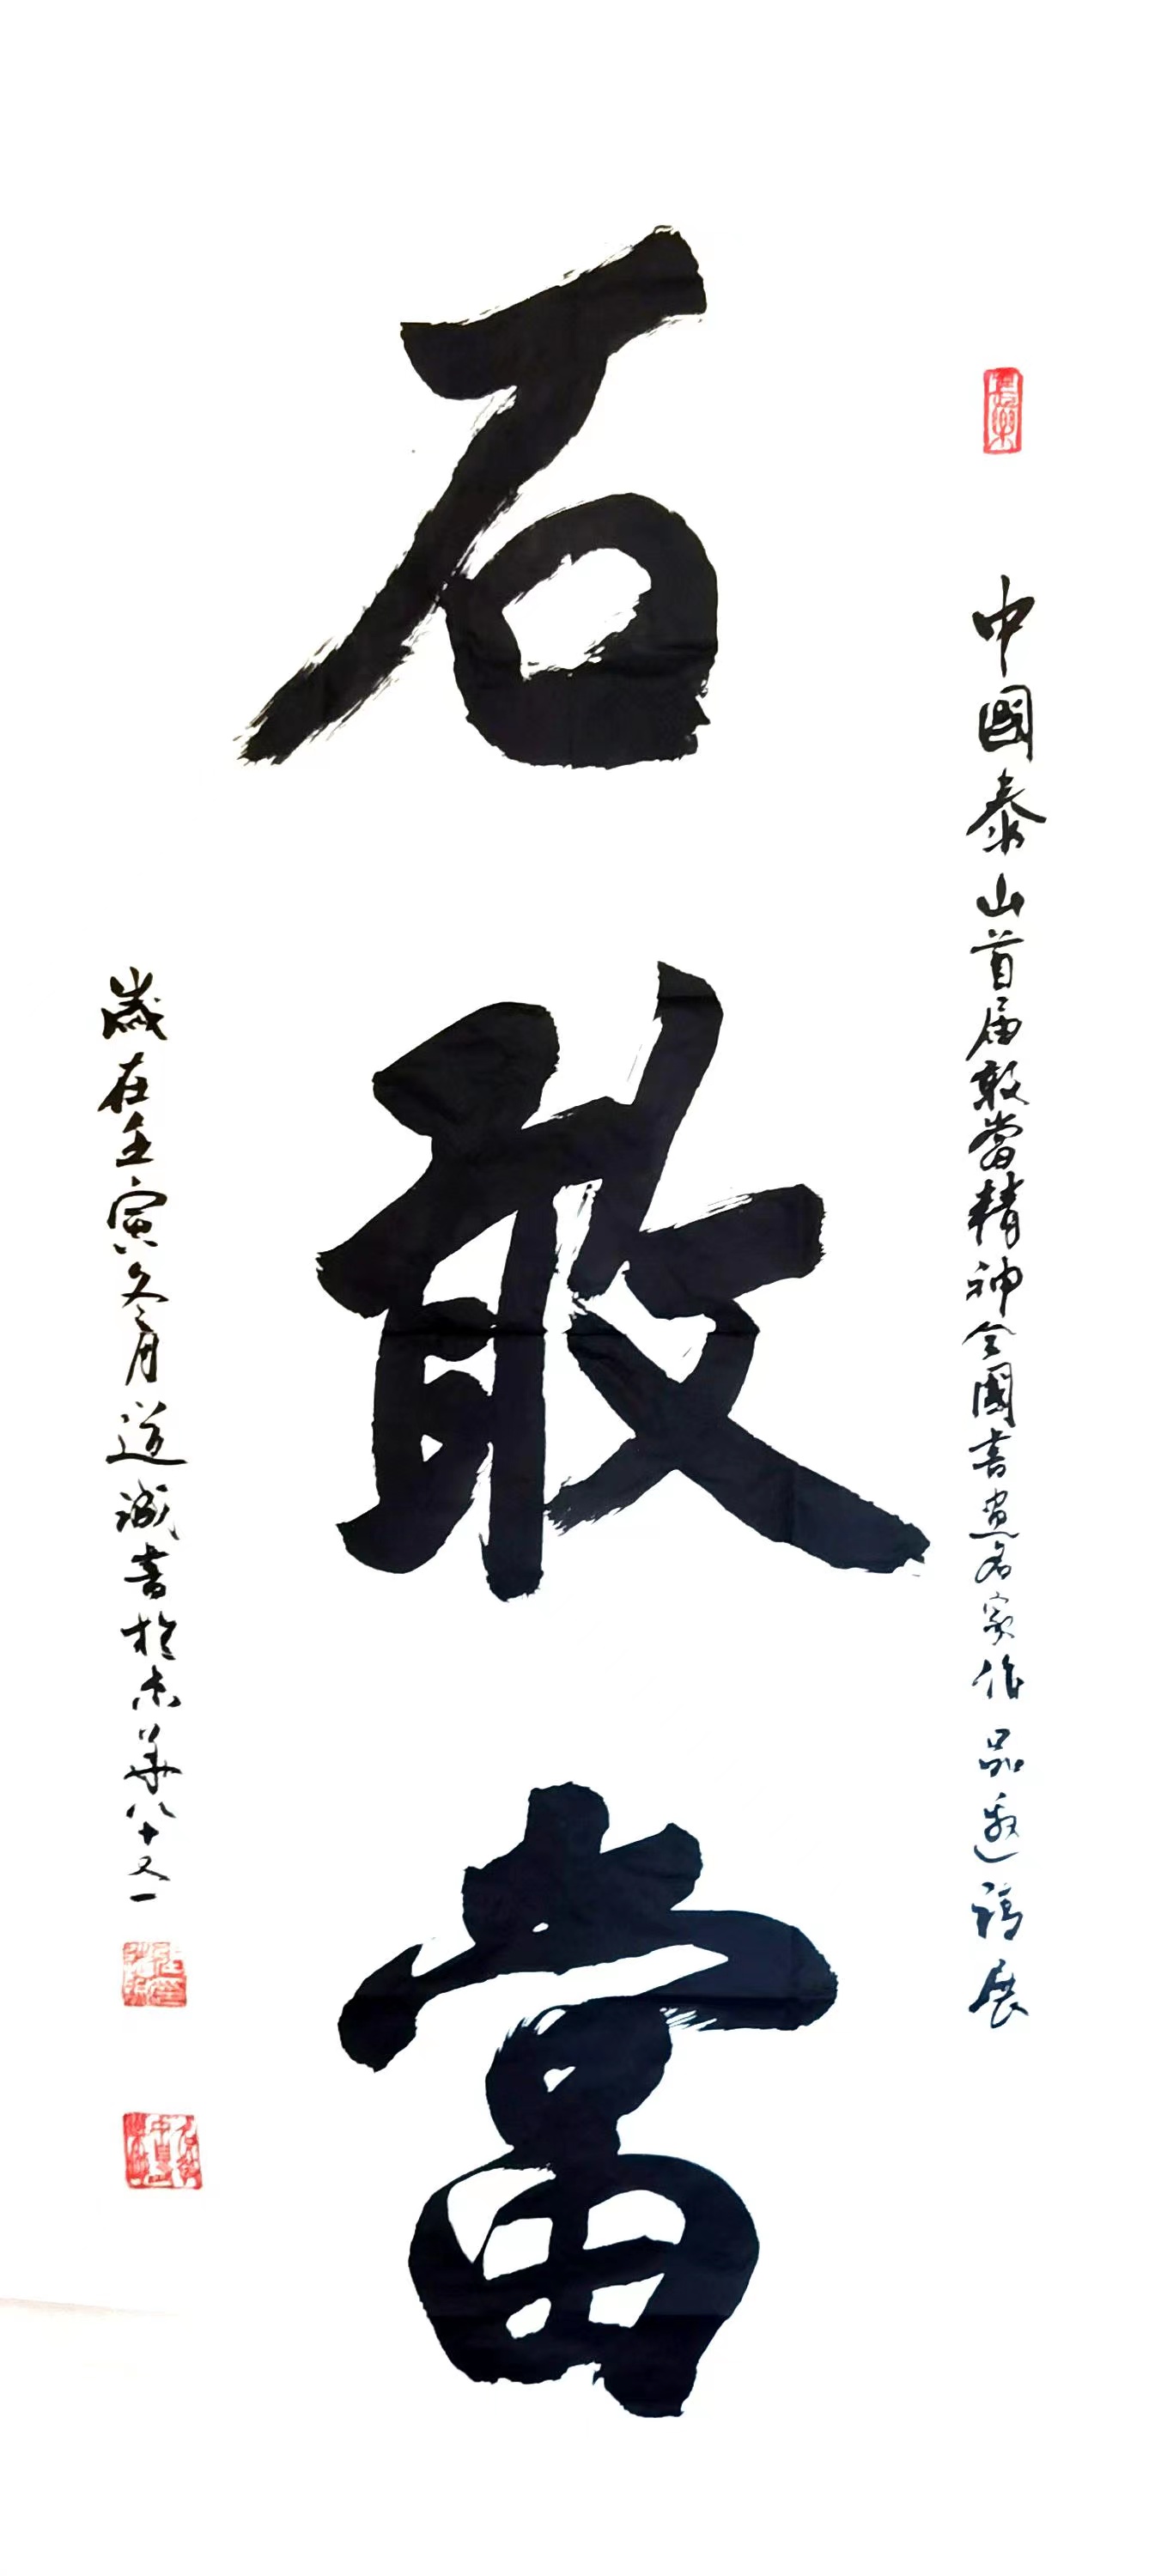 中國泰山首届敢當精神全國書畫名家作品邀稿展
石敢當
歲在壬寅冬月道誠書於京華八十又一